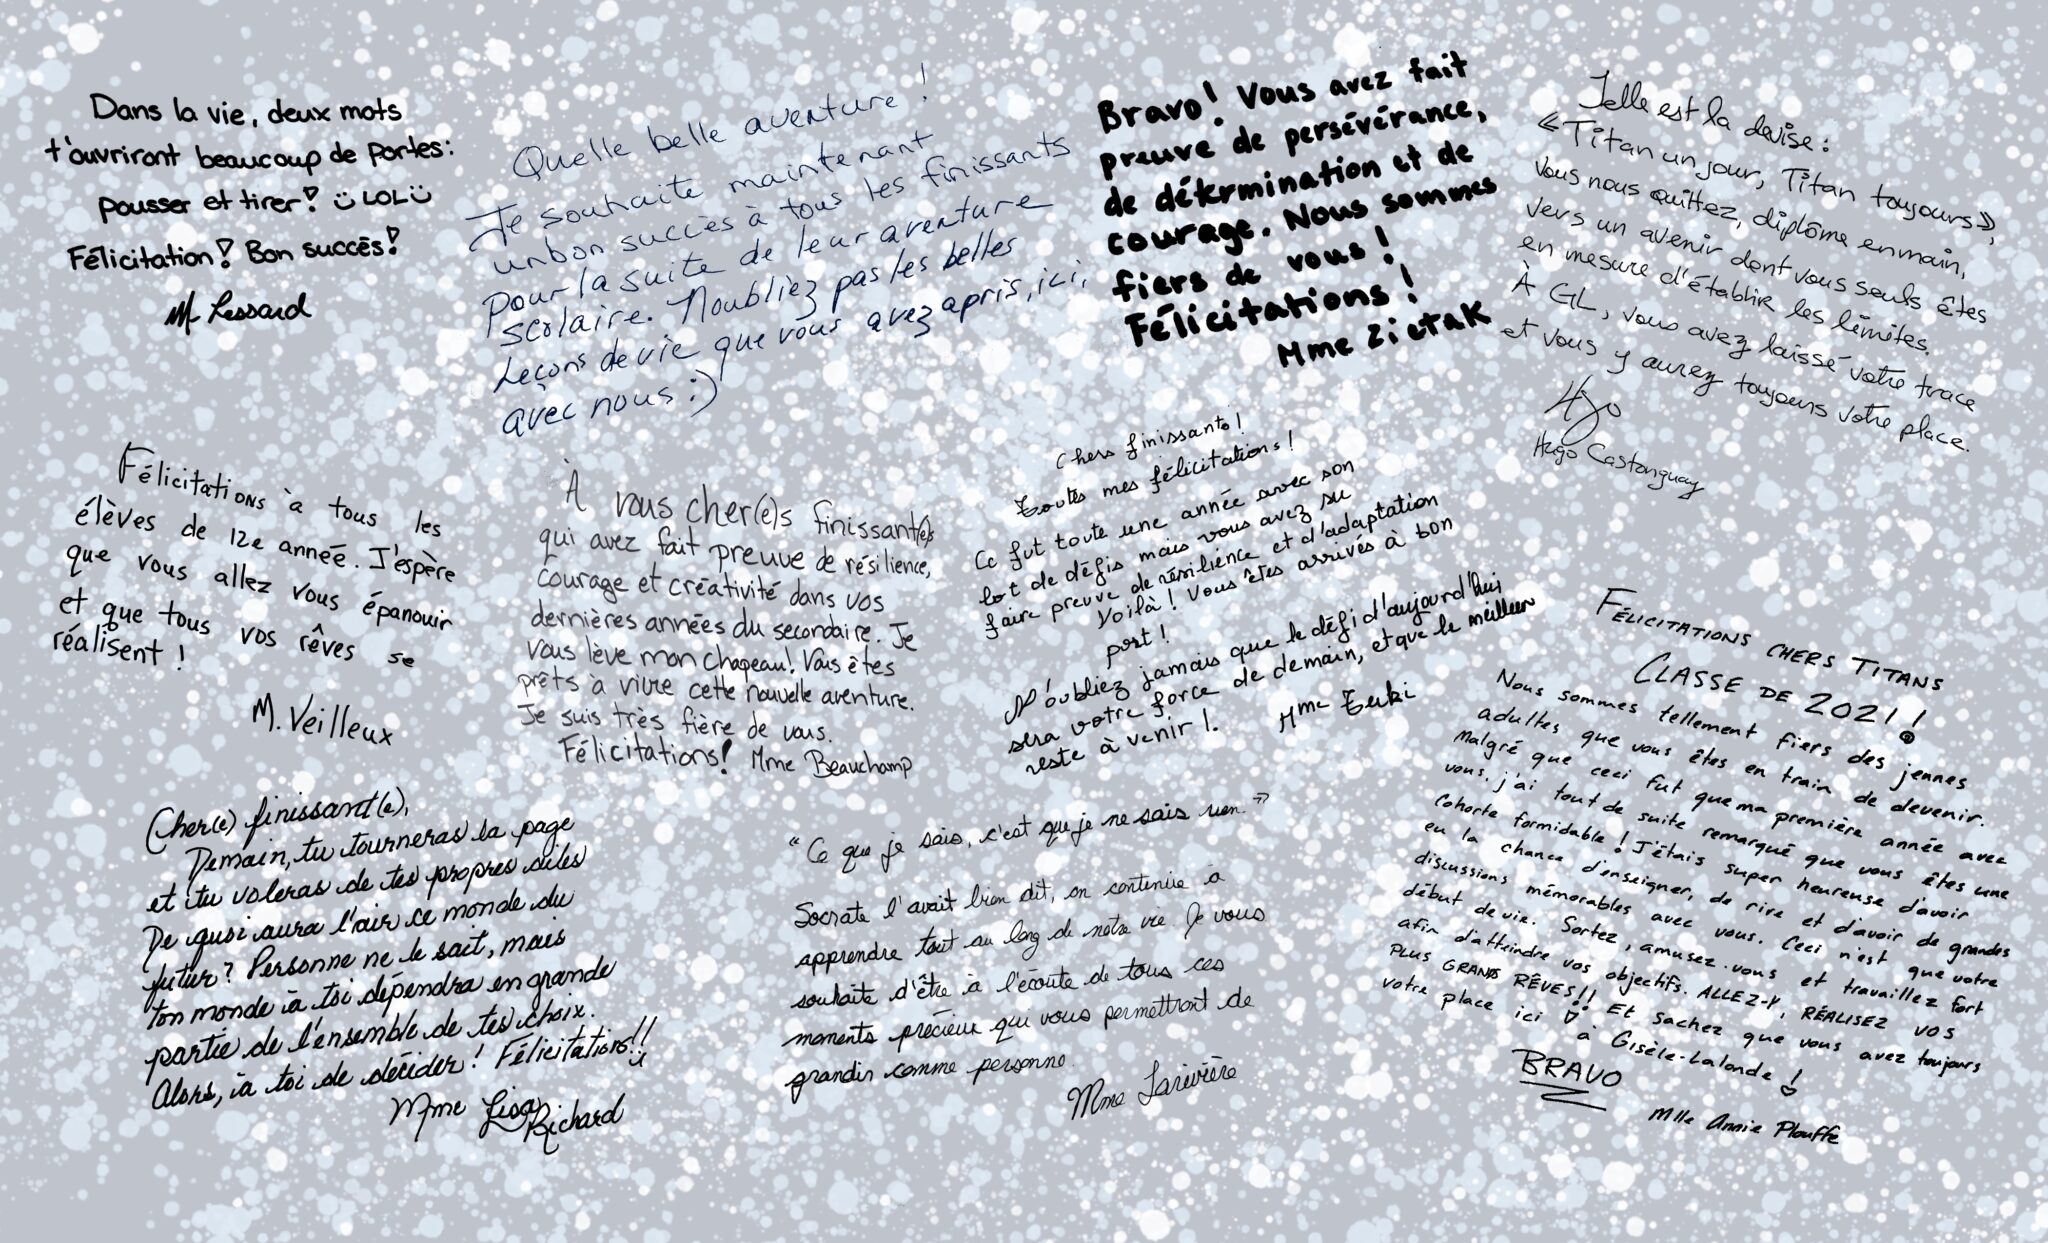 Dans la vie, deux mots
t'ouvriront beaucoup de portes:
pousser et tirer! ü LOL ü
Félicitation! Bon succès!
M. Lessard
Quelle belle aventure!
Je souhaite maintenant
un bon succès à tous les finissants
pour la suite de leur aventure
scolaire. Noubliez pas les belles
Leçons de vie que vous avez apris, ici,
avec nous :)
Bravo! Vous avez fait
preuve de persévérance,
de détermination et de
courage. Nous sommes
fiers de vous!
Félicitations!
Mme Zietak
Telle est la devise:
«Titan un jour, Titan toujours»,
Vous nous quittez, diplôme en main,
vers un avenir dont vous seuls êtes
en mesure d'établir les limites.
À GL, vous avez laissé votre trace
et vous y aurez toujours votre place.
Hugo
Hugo Castonguay
Félicitations à tous les
élèves de 12e année. J'espère
que vous allez vous épanouir
et que tous vos rêves se
réalisent!
M. Veilleux
À vous cher(e)s finissant(e)s
qui avez fait preuve de résilience,
courage et créativité dans vos
dernières années du secondaire. Je
vous lève mon chapeau! Vous êtes
prêts à vivre cette nouvelle aventure.
Je suis très fière de vous.
Félicitations! Mme Beauchamp
Chers finissants!
Toutes mes félicitations!
Ce fut toute une année avec son
lot de défis mais vous avez su
faire preuve de résilience et d'adaptation
Voilà! Vous êtes arrivés à bon
port!
N'oubliez jamais que le défi d'aujourd'hui
sera votre force de demain, et que le meilleur
reste à venir!
Mme Turki
FÉLICITATIONS CHERS TITANS
CLASSE DE 2021!
Nous sommes tellement fiers des jeunes
adultes que vous êtes en train de devenir.
Malgré que ceci fut que ma première année avec
vous, j'ai tout de suite remarqué que vous êtes une
cohorte formidable! J'étais super heureuse d'avoir
eu la chance d'enseigner, de rire et d'avoir de grandes
discussions mémorables avec vous. Ceci n'est que votre
début de vie. Sortez, amusez-vous et travaillez fort
afin d'atteindre vos objectifs. ALLEZ-Y, RÉALISEZ VOS
PLUS GRANDS RÊVES!! Et sachez que vous avez toujours
votre place ici à Gisèle-Lalonde!
BRAVO
Mlle Annie Plouffe
Cher(e) finissant(e),
Demain, tu tourneras la page
et tu voleras de tes propres ailes
De quoi aura l'air ce monde du
futur? Personne ne le sait, mais
ton monde à toi dépendra en grande
partie de l'ensemble de tes choix.
Alors, à toi de décider! Félicitations!!
Mme Lisa Richard
"Ce que je sais, c'est que je ne sais rien."
Socrate l'avait bien dit, on continue à
apprendre tout au long de notre vie. Je vous
souhaite d'être à l'écoute de tous ces
moments précieux qui vous permettront de
grandir comme personne.
Mme Larivière